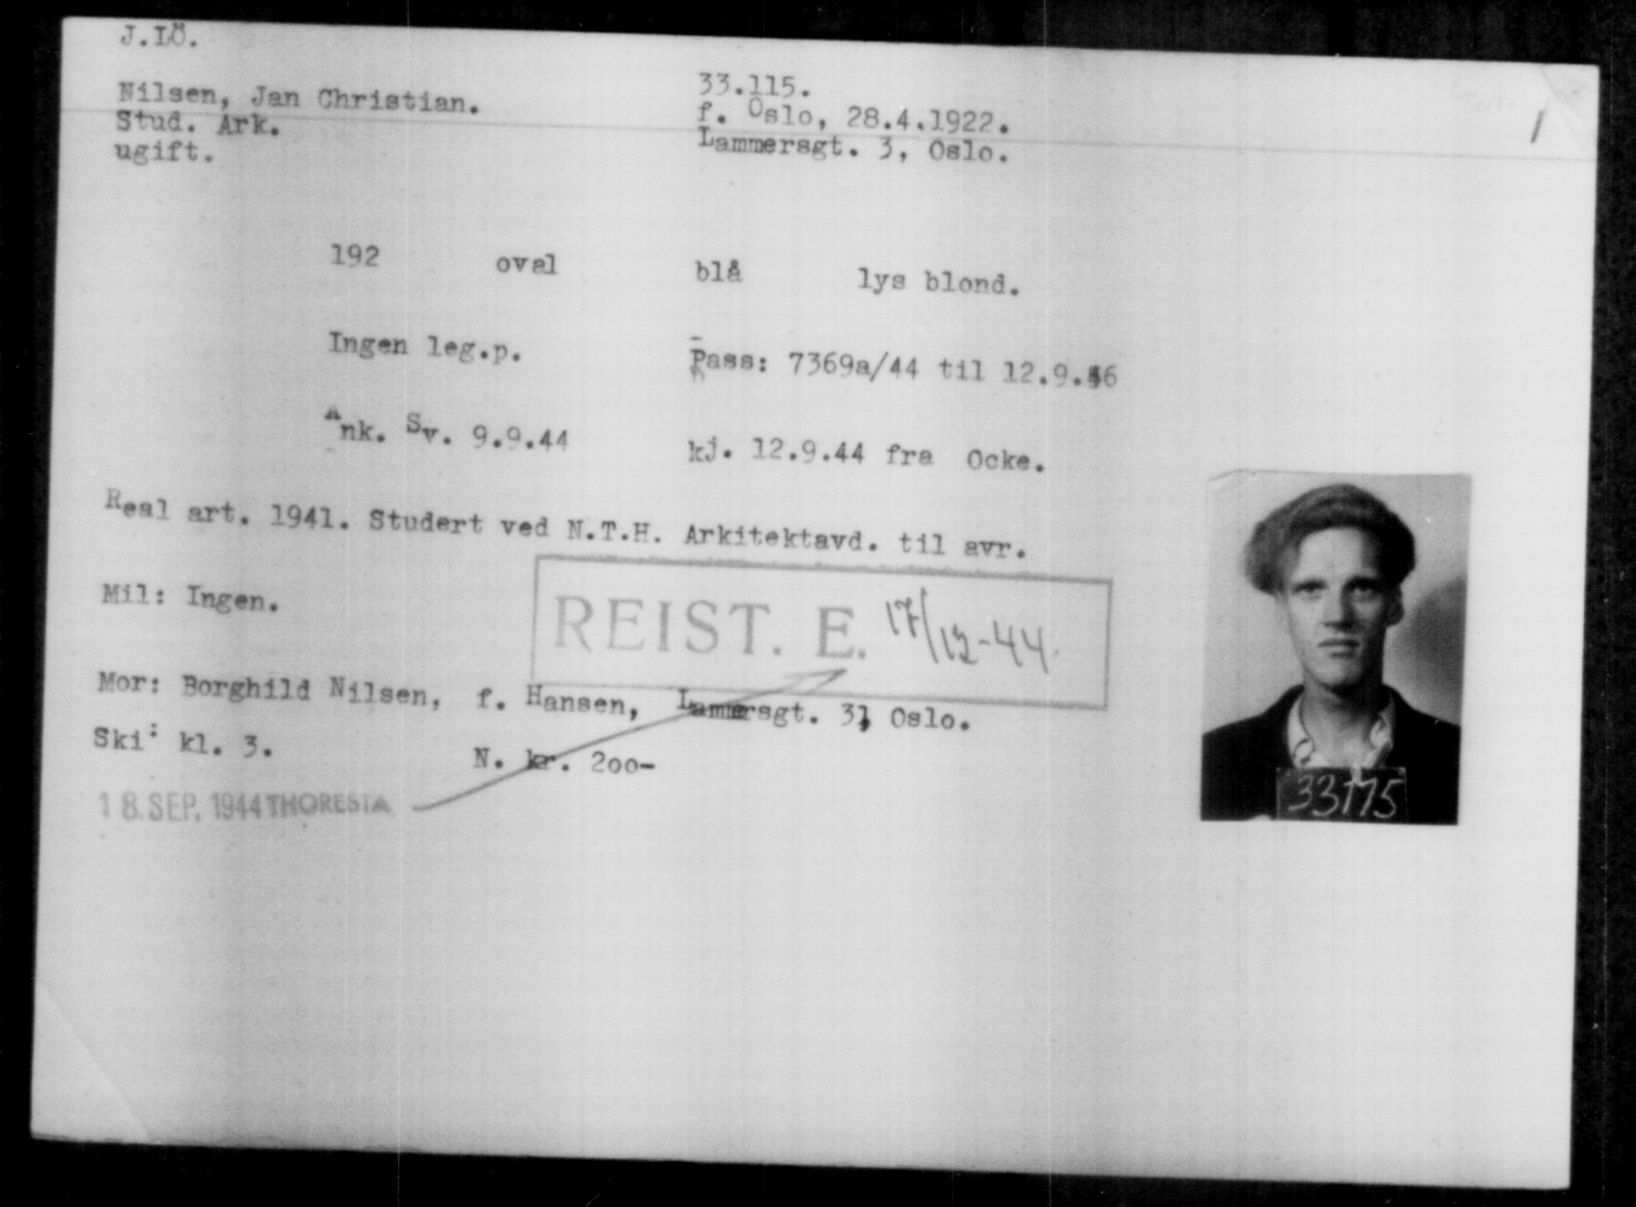 J.LÖ.
Nilsen, Jan Christian.
Stud. Ark.
ugift.
33.115.
f. Oslo, 28.4.1922.
Lammersgt. 3, Oslo.
1
192 oval blå lys blond.
Ingen leg.p. Pass: 7369a/44 til 12.9.46
Ank. Sv. 9.9.44 kj. 12.9.44 fra Ocke.
Real art. 1941. Studert ved N.T.H. Arkitektavd. til avr.
Mil: Ingen.
REIST. E. 17/12-44.
Mor: Borghild Nilsen, f. Hansen, Lammersgt. 3, Oslo.
Ski: kl. 3. N. kr. 200-
18. SEP. 1944 THORESTA
33115